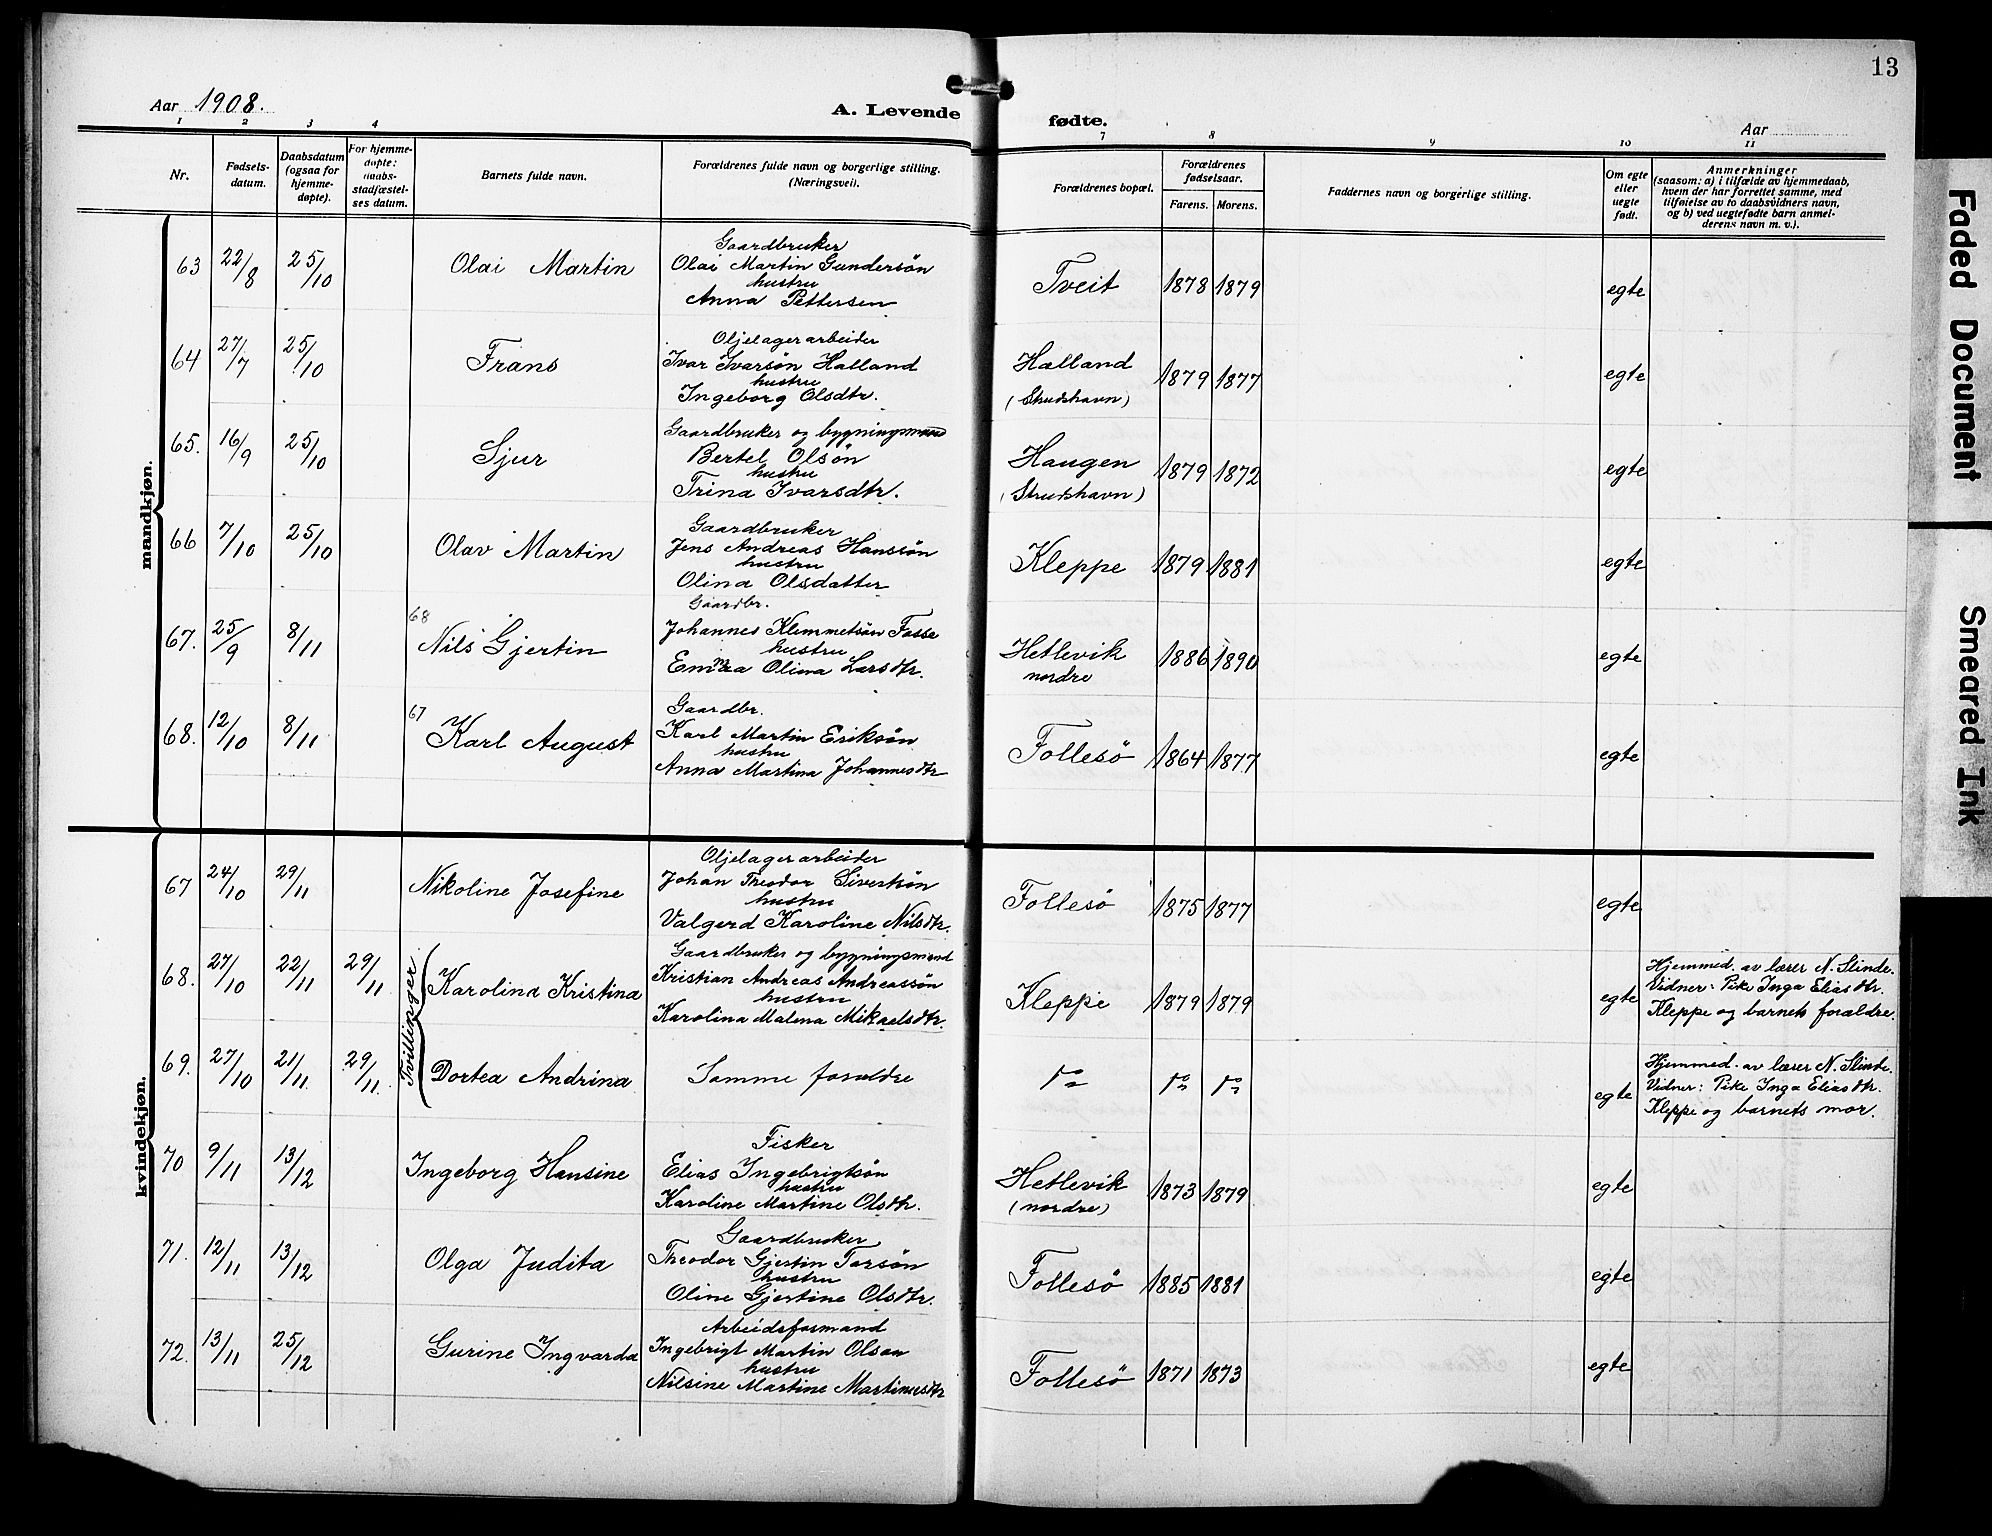 13
Aar 1908.
A. Levende
fødte.
Aar
1 2 3 4
7 8 9 10 11
Nr.
Fødsels-
datum.
Daabsdatum
(ogsaa for
hjemme-
døpte).
For hjemme-
døpte:
daabs-
stadfæstel-
ses datum.
Barnets fulde navn.
Forældrenes fulde navn og borgerlige stilling.
(Næringsvei).
Forældrenes bopæl.
Forældrenes
fødselsaar.
Farens. Morens.
Faddernes navn og borgerlige stilling.
Om egte
eller
uegte
født.
Anmerkninger
(saasom: a) i tilfælde av hjemmedaab,
hvem der har forrettet samme, med
tilføielse av to daabsvidners navn,
og b) ved uegtefødte barn anmel-
derens navn m. v.).
mandkjøn.
Gaardbruker
63 22/8 25/10 Olai Martin Olai Martin Gundersøn Tveit 1878 1879 egte
hustru
Anna Pettersen
Oljelagerarbeider
64 27/7 25/10 Frans Ivar Ivarsøn Halland Halland 1879 1877 egte
hustru
Ingeborg Olsdtr. (Strudshavn)
Gaardbruker og bygningsmand
65. 16/9 25/10 Sjur Bertel Olsøn Haugen 1879 1872 egte
hustru
Trina Ivarsdtr. (Strudshavn)
Gaardbruker
66 7/10 25/10 Olav Martin Jens Andreas Hanssøn Kleppe 1879 1881 egte
hustru
Olina Olsdatter
Gaardbr.
68
67. 25/9 8/11 Nils Gjertin Johannes Klemmetsøn Fosse Hetlevik 1886 1890 egte
hustru
Emma Olina Larsdtr. nordre
67 Gaardbr.
68. 12/10 8/11 Karl August Karl Martin Eriksøn Follesø 1864 1877 egte
hustru
Anna Martina Johannesdtr
kvindekjøn.
Oljelagerarbeider
67 24/10 29/11 Nikoline Josefine Johan Theodor Sivertsøn Follesø 1875 1877 egte
hustru
Valgerd Karoline Nilsdtr.
Tvillinger
Gaardbruker og bygningsmand
68. 27/10 22/11 29/11 Karolina Kristina Kristian Andreas Andreassøn Kleppe 1879 1879 egte
hustru
Karolina Malena Mikaelsdtr.
Hjemmed. av lærer N. Slinde.
Vidner: Pike Inga Eliasdtr.
Kleppe og barnets forældre.
69. 27/10 21/11 29/11 Dortea Andrina Samme forældre egte
Hjemmed. av lærer N. Slinde.
Vidner: Pike Inga Eliasdtr.
Kleppe og barnets mor.
Fisker
70 9/11 13/12 Ingeborg Hansine Elias Ingebrigtsøn Hetlevik 1873 1879 egte
hustru
Karoline Martine Olsdtr. (nordre)
Gaardbruker
71. 12/11 13/12 Olga Judita Theodor Gjertin Torsøn Follesø 1885 1881 egte
hustru
Oline Gjertine Olsdtr.
Arbeidsformand
72. 13/11 25/12 Gurine Ingvarda Ingebrigt Martin Olson Follesø 1871 1873 egte
hustru
Nilsine Martine Martinusdtr
Faded Document
Smeared Ink